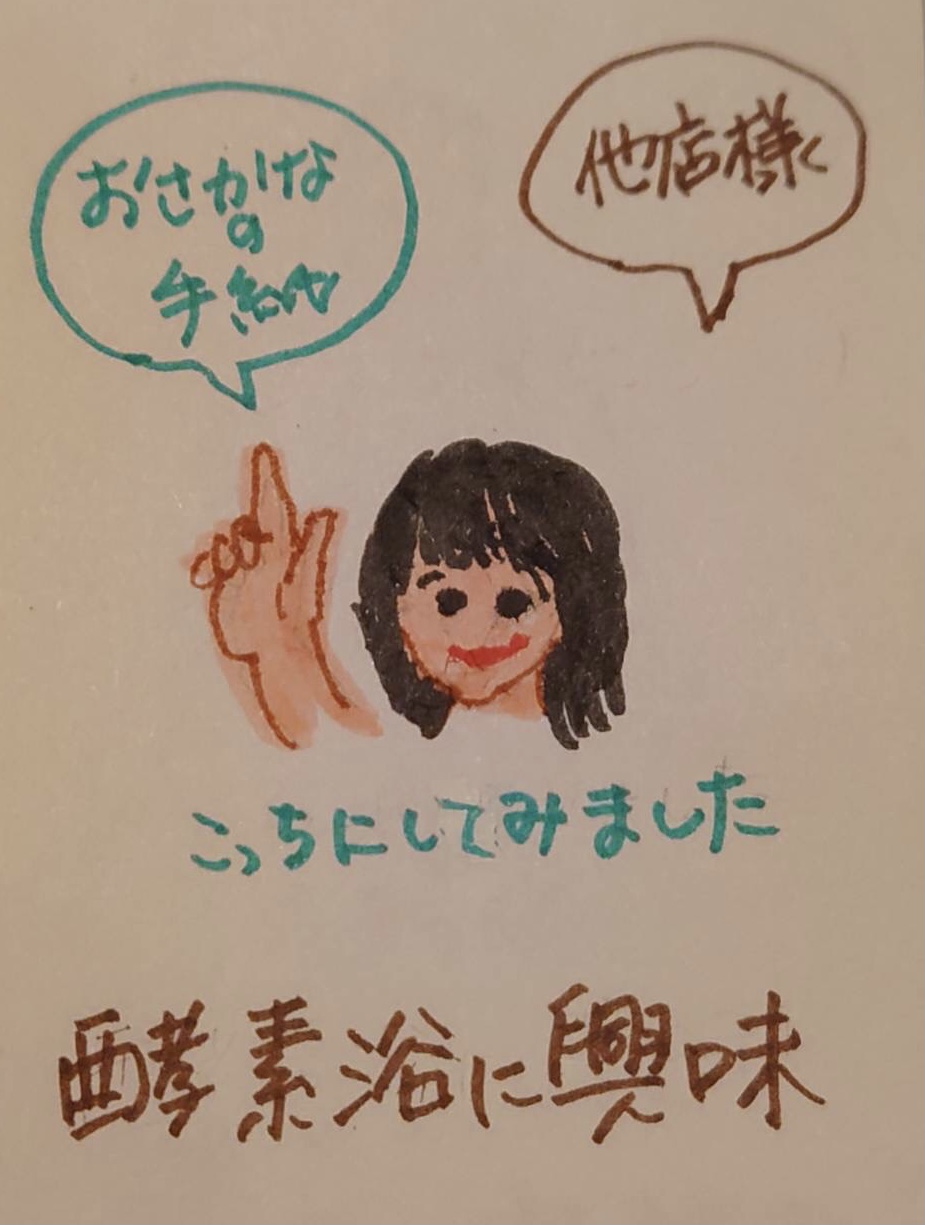 おさかな
の
手紙
他店様
こっちにしてみました
酵素浴に興味